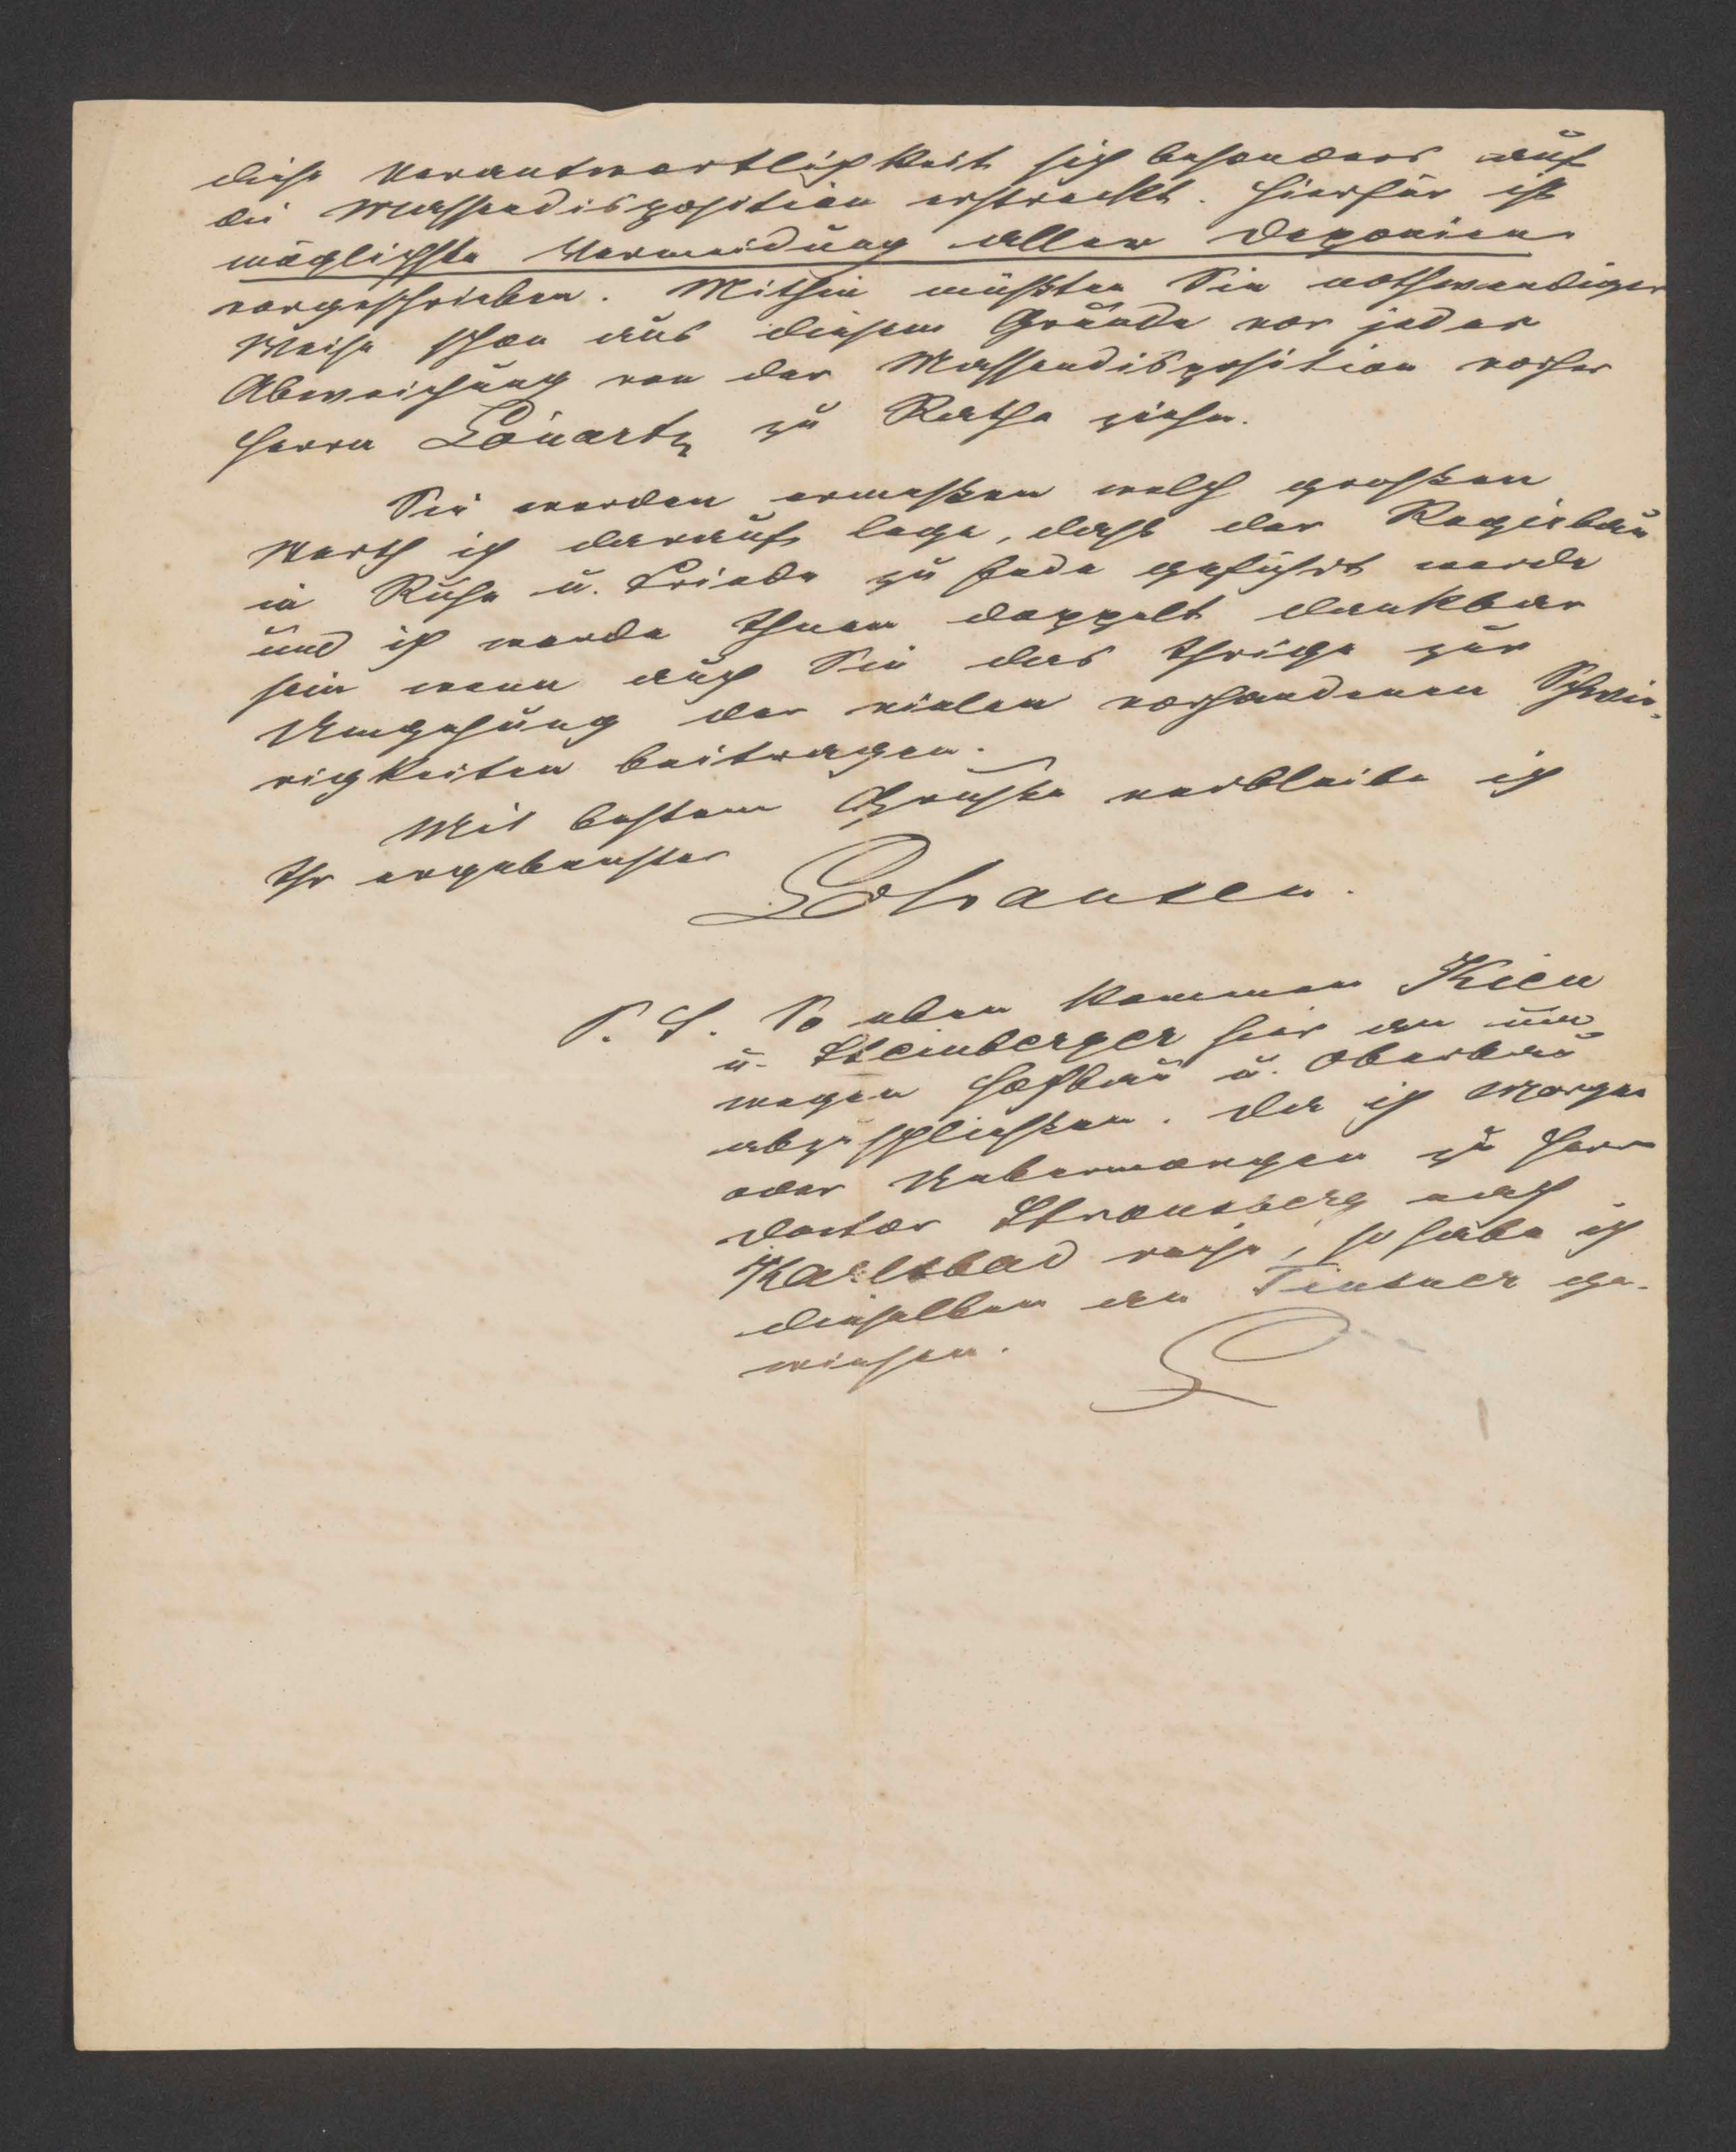 diese Verantwortlichkeit sich besonders auf
die Massendisposition erstreckt. Hierfür ist
möglichste Vermeidung aller Deponien
vorgeschrieben. Mithin müßten Sie nothwendiger
Weise schon aus diesem Grunde vor jeder
Abweichung von der Massendisposition vorher
Herrn Lönartz zu Rathe ziehen.
Sie werden ermeßen welch großen
Werth ich darauf lege, daß der Regiebau
in Ruhe u. Friede zu Ende geführt werde
und ich werde Ihnen doppelt dankbar
sein wenn auch Sie das Ihrige zur
Umgehung der vielen vorhandenen Schwie-
rigkeiten beitragen.
Mit bestem Gruße verbleibe ich
Ihr ergebenster
P. S. So eben kommen Kien
u. Steinberger hier an um
wegen Hochbau u. Oberbau
abzuschließen. Da ich Morgen
oder Uebermorgen zu Herrn
Doctor Strousberg nach
Karlsbad reise, so habe ich
dieselben an Tintner ge-
wiesen.